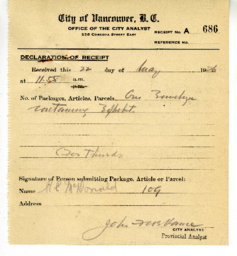 City of Vancouver, B. C.
OFFICE OF THE CITY ANALYST
236 CORDOVA STREET EAST
RECEIPT No. A 686
REFERENCE No.
DECLARATION OF RECEIPT
Received this 22 day of May 19
at 11.55
No. of Packages, Articles, Parcels. One
containing Exhibit.
Signature of Person submitting Package, Article or Parcel:
Name McDonald 109
Address
John Vance
CITY ANALYST
Provincial Analyst